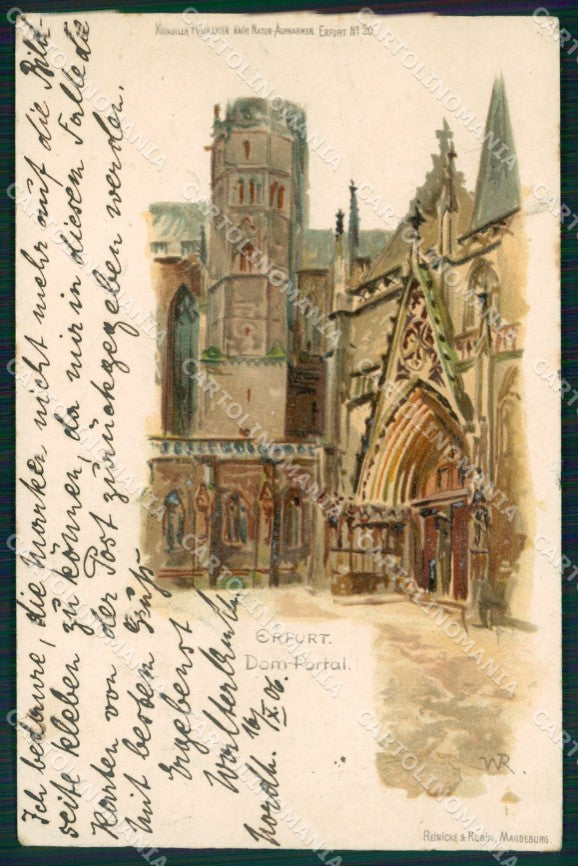 KÜNSTLER POSTKARTEN NACH NATUR-AUFNAHMEN. ERFURT No 20.
Ich bedaure, die Marken nicht mehr auf die Bild-
seite kleben zu können, da mir in diesem Falle die
Karten von der Post zurückgegeben werden.
Mit bestem Gruß
Ergebenst
Walter
Nordh. 16/IX.06.
ERFURT.
Dom-Portal.
WR
REINICKE & RUBIN, MAGDEBURG.
CARTOLINOMANIA